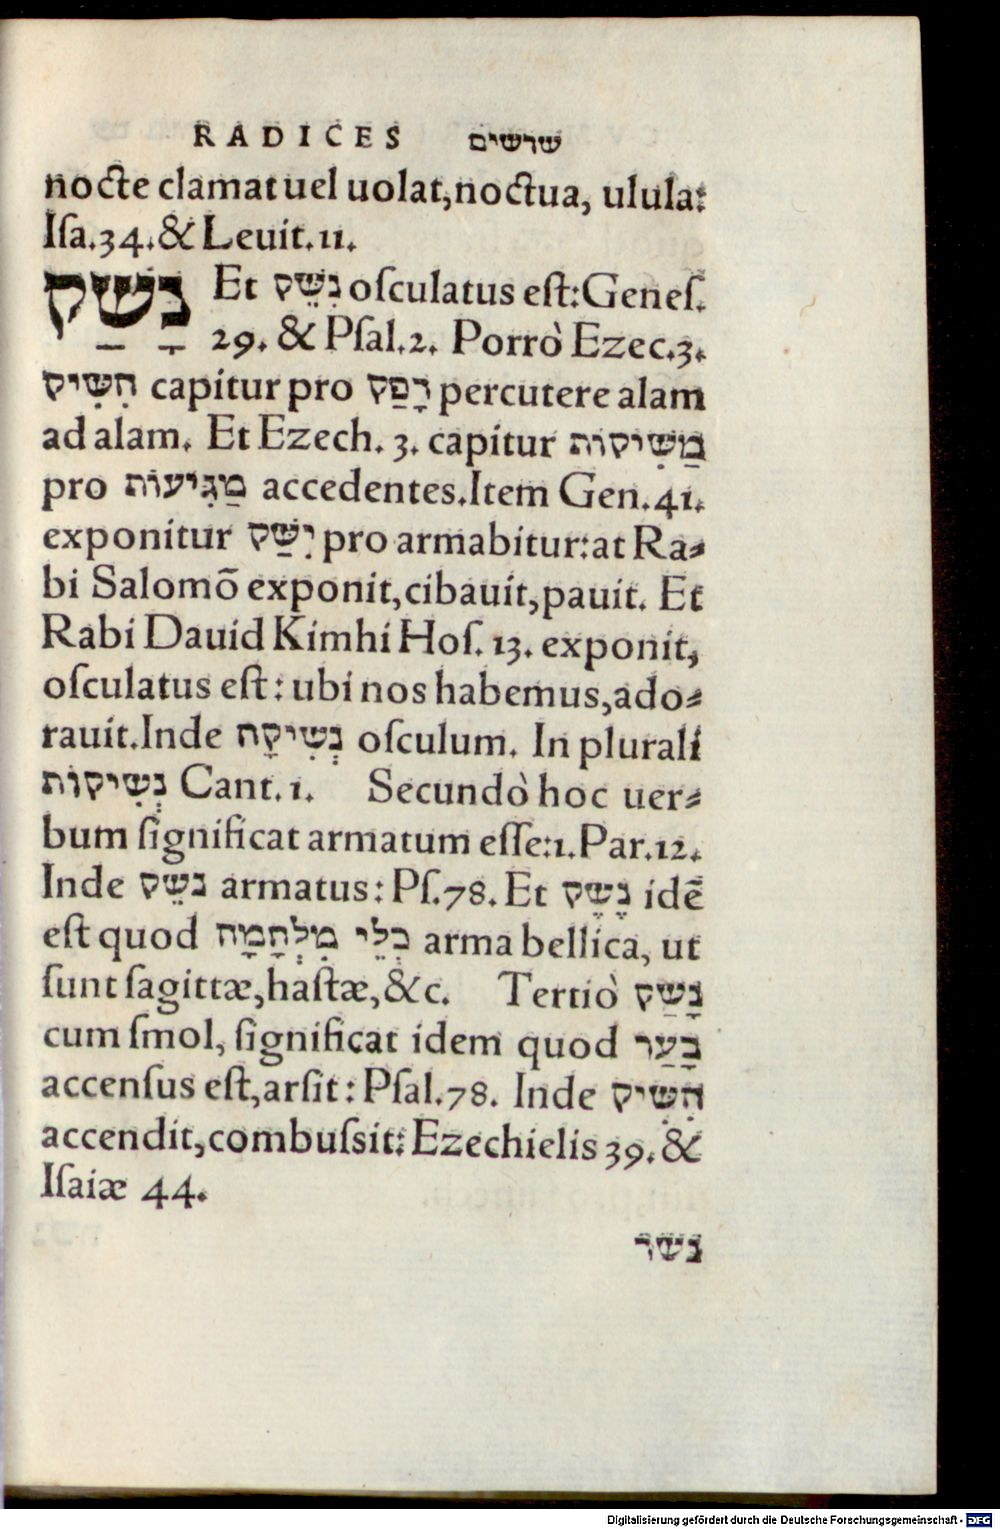 RADICES שרשים
nocte clamat uel uolat, noctua, ulula:
Iſa.34.& Leuit.11.
נָשַׁק Et נִשֵּׁק oſculatus eſt: Geneſ.
29. & Pſal.2. Porrò Ezec.3.
חִשִּׁיק capitur pro דָפַק percutere alam
ad alam. Et Ezech. 3. capitur מַשִּׁיקוֹת
pro מַגִּיעוֹת accedentes. Item Gen.41.
exponitur יִשַּׁק pro armabitur: at Ra⸗
bi Salomõ exponit, cibauit, pauit. Et
Rabi Dauid Kimhi Hoſ. 13. exponit,
oſculatus eſt: ubi nos habemus, ado⸗
rauit. Inde נְשִׁיקָה oſculum. In plurali
נְשִׁיקוֹת Cant. 1. Secundò hoc uer⸗
bum ſignificat armatum eſſe: 1. Par.12.
Inde נֹשֵׁק armatus: Pſ.78. Et נֶשֶׁק idẽ
eſt quod כְּלֵי מִלְחָמָה arma bellica, ut
ſunt ſagittæ, haſtæ, &c. Tertiò נָשַׂק
cum ſmol, ſignificat idem quod בָּעַר
accenſus eſt, arſit: Pſal.78. Inde הִשִּׂיק
accendit, combuſsit: Ezechielis 39. &
Iſaiæ 44.
נשר
Digitalisierung gefördert durch die Deutsche Forschungsgemeinschaft - DFG